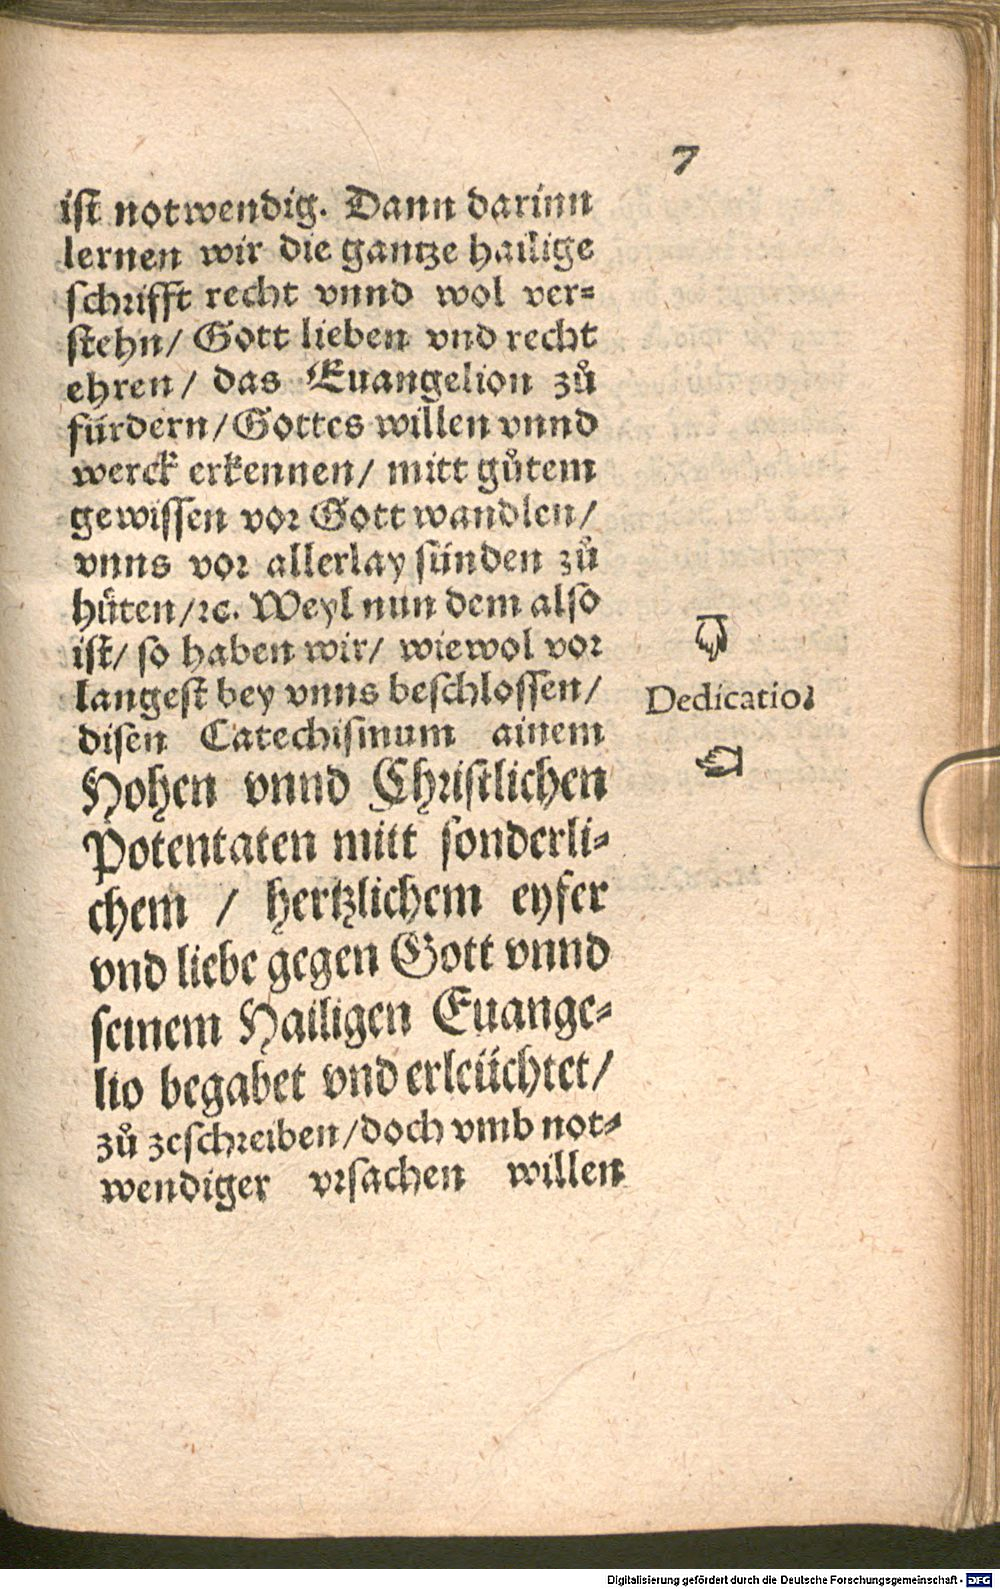 7
ist notwendig. Dann darinn
lernen wir die gantze hailige
schrifft recht vnnd wol ver-
stehn/ Gott lieben vnd recht
ehren/ das Euangelion zů
fürdern/ Gottes willen vnnd
werck erkennen/ mitt gůtem
gewissen vor Gott wandlen/
vnns vor allerlay sünden zů
hüten/ ꝛc. Weyl nun dem also
ist/ so haben wir/ wiewol vor
langest bey vnns beschlossen/
disen Catechismum ainem
Hohen vnnd Christlichen
Potentaten mitt sonderli-
chem / hertzlichem eyfer
vnd liebe gegen Gott vnnd
seinem Hailigen Euange-
lio begabet vnd erleüchtet/
zů zeschreiben/ doch vmb not-
wendiger vrsachen willen
☟
Dedicatio.
☜
Digitalisierung gefördert durch die Deutsche Forschungsgemeinschaft - DFG